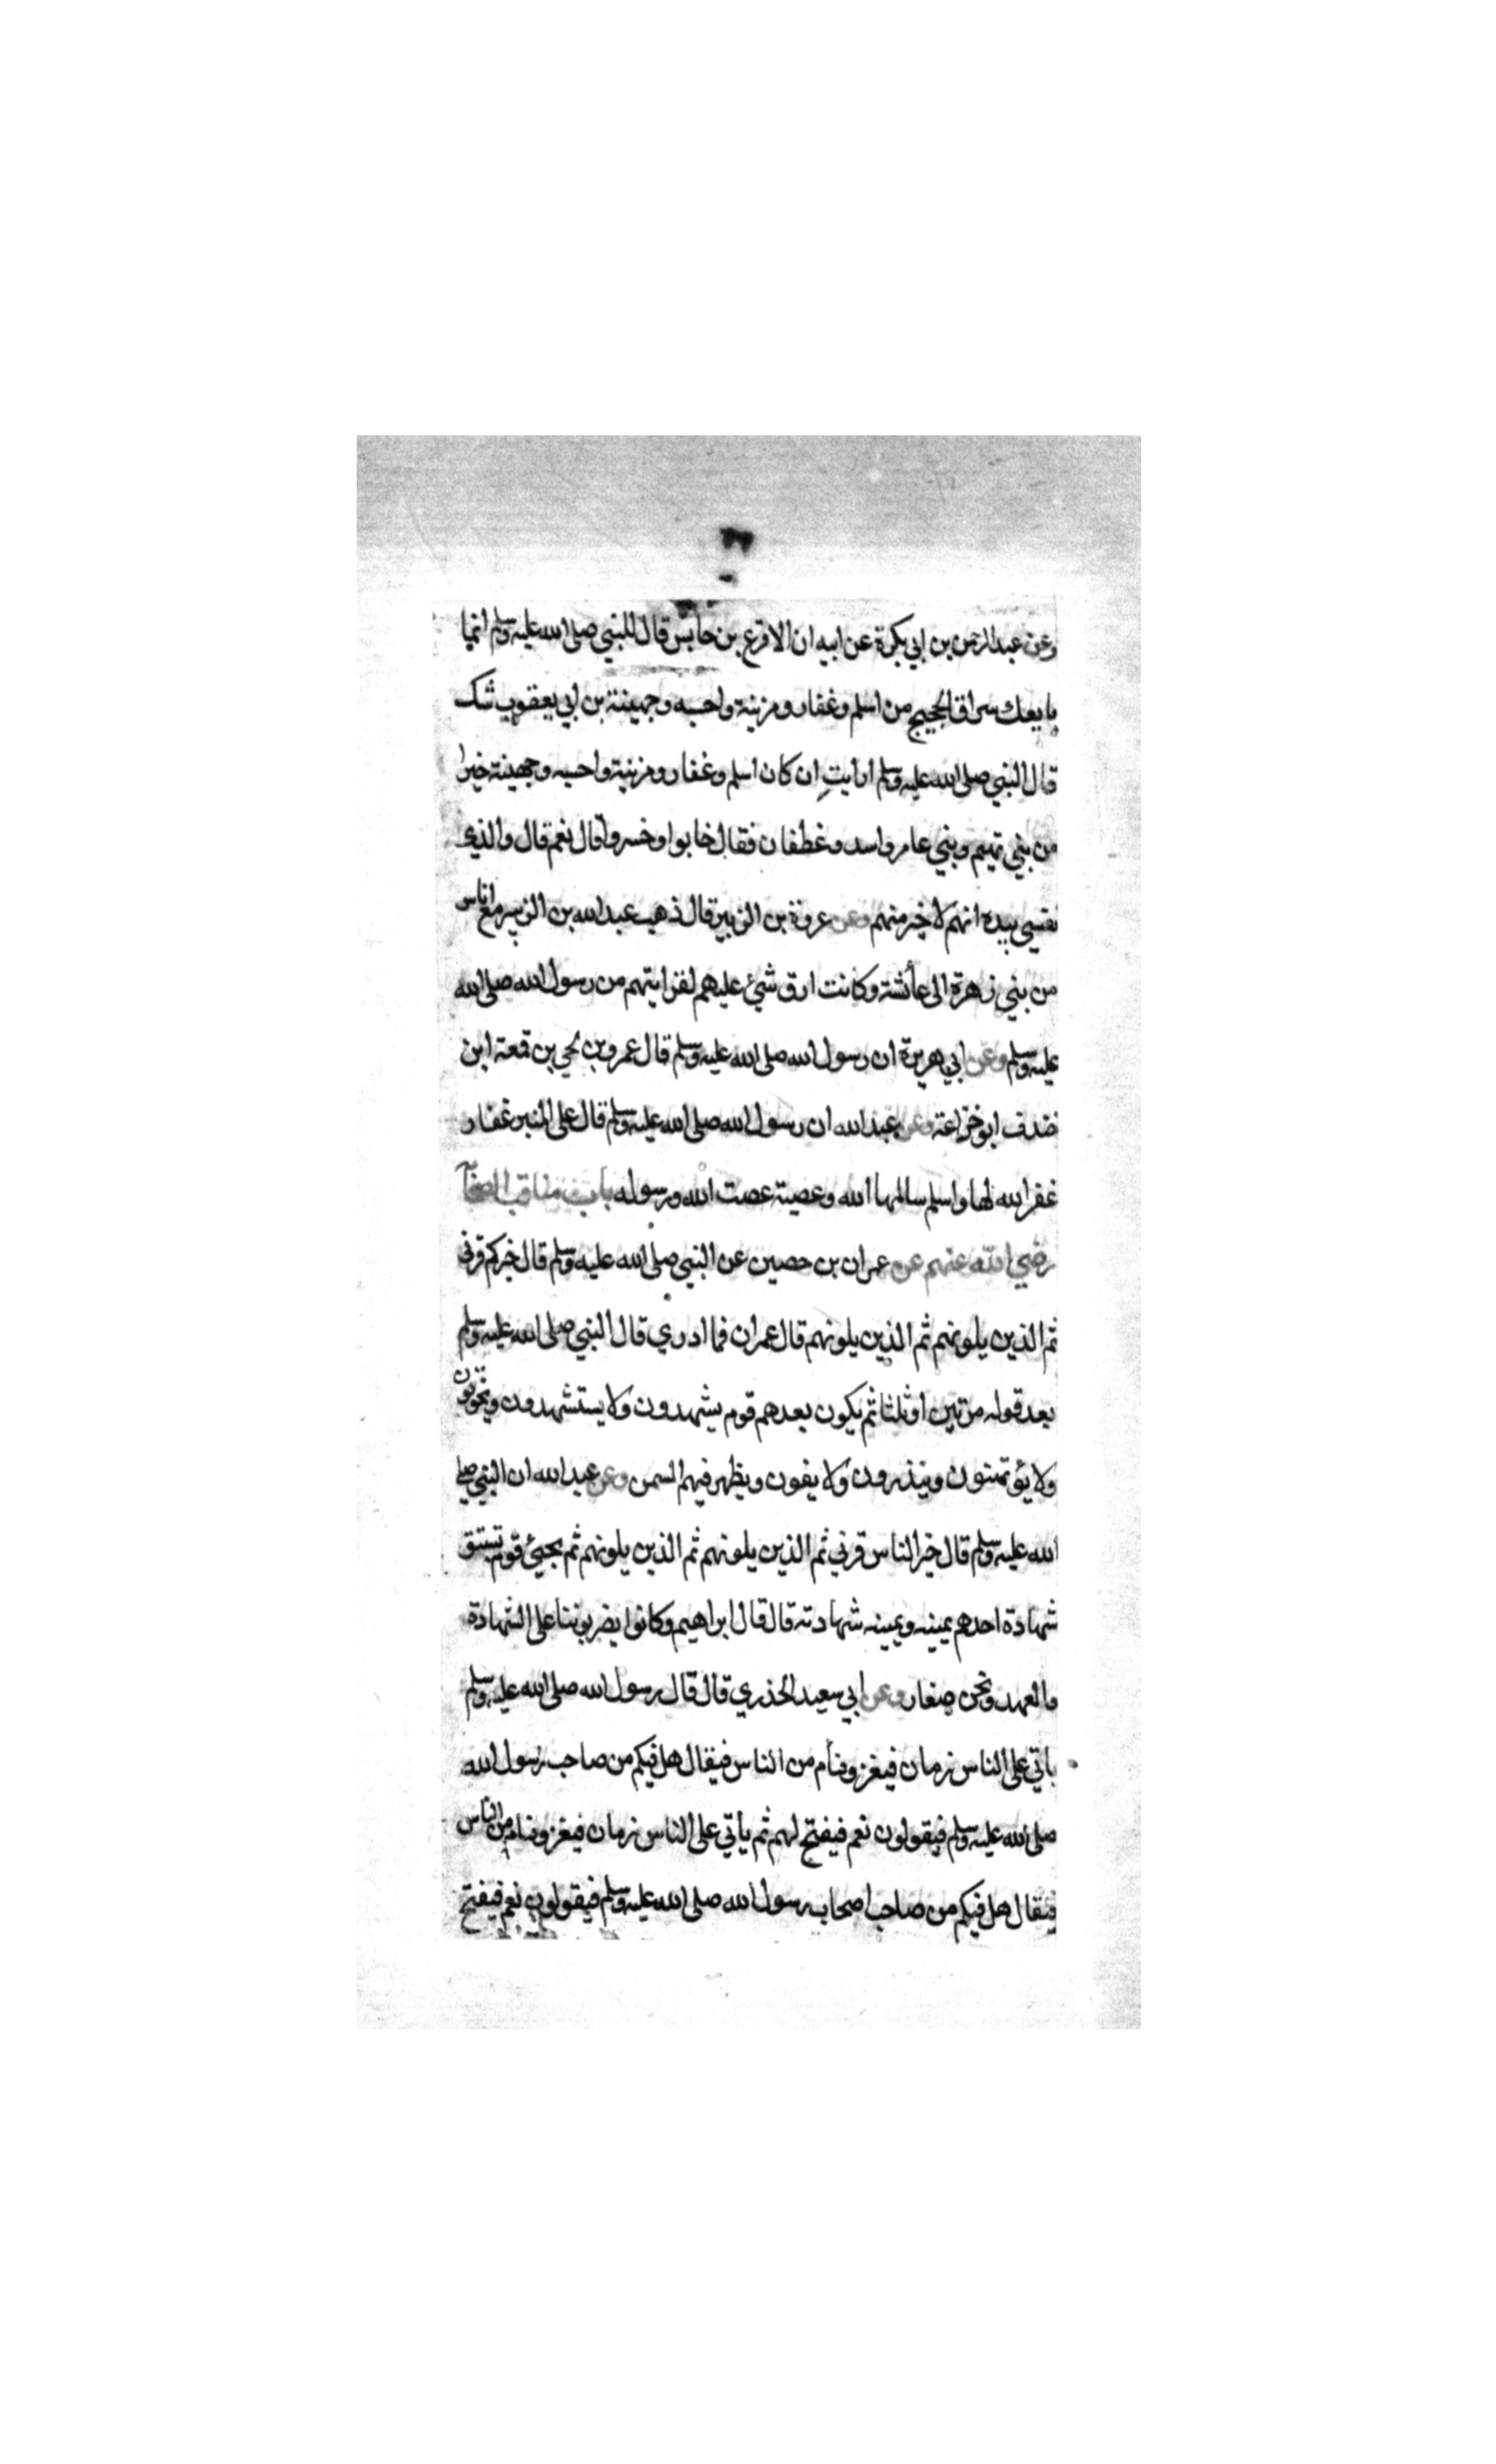 وعن عبد الرحمن بن ابي بكرة عن ابيه ان الاقرع بن حابس قال للنبي صلى الله عليه وسلم انما
بايعك سراق الحجيج من اسلم وغفار ومزينة واحسبه وجهينة بن ابي يعقوب شك
قال النبي صلى الله عليه وسلم ارايت ان كان اسلم وغفار ومزينة واحسبه وجهينة خيرا
من بني تميم وبني عامر واسد وغطفان فقال خابوا وخسروا قال نعم قال والذي
نفسي بيده انهم لاخير منهم وعن عروة بن الزبير قال ذهب عبد الله بن الزبير مع اناس
من بني زهرة الى عائشة وكانت ارق شئ عليهم لقرابتهم من رسول الله صلى الله
عليه وسلم وعن ابي هريرة ان رسول الله صلى الله عليه وسلم قال عمرو بن لحي بن قمعة ابن
خندف ابو خزاعة وعن عبد الله ان رسول الله صلى الله عليه وسلم قال على المنبر غفار
غفر الله لها واسلم سالمها الله وعصية عصت الله ورسوله باب مناقب الصحابة
رضي الله عنهم عن عمران بن حصين عن النبي صلى الله عليه وسلم قال خيركم قرني
ثم الذين يلونهم ثم الذين يلونهم قال عمران فما ادري قال النبي صلى الله عليه وسلم
بعد قوله مرتين او ثلثا ثم يكون بعدهم قوم يشهدون ولا يستشهدون ويخونون
ولا يؤتمنون وينذرون ولا يفون ويظهر فيهم السمن وعن عبد الله ان النبي صلى
الله عليه وسلم قال خير الناس قرني ثم الذين يلونهم ثم الذين يلونهم ثم يجيئ قوم تسبق
شهادة احدهم يمينه ويمينه شهادته قال قال ابراهيم وكانوا يضربوننا على الشهادة
والعهد ونحن صغار وعن ابي سعيد الخدري قال قال رسول الله صلى الله عليه وسلم
يأتي على الناس زمان فيغزو فئام من الناس فيقال هل فيكم من صاحب رسول الله
صلى الله عليه وسلم فيقولون نعم فيفتح لهم ثم يأتي على الناس زمان فيغزو فئام من الناس
فيقال هل فيكم من صاحب اصحاب رسول الله صلى الله عليه وسلم فيقولون نعم فيفتح